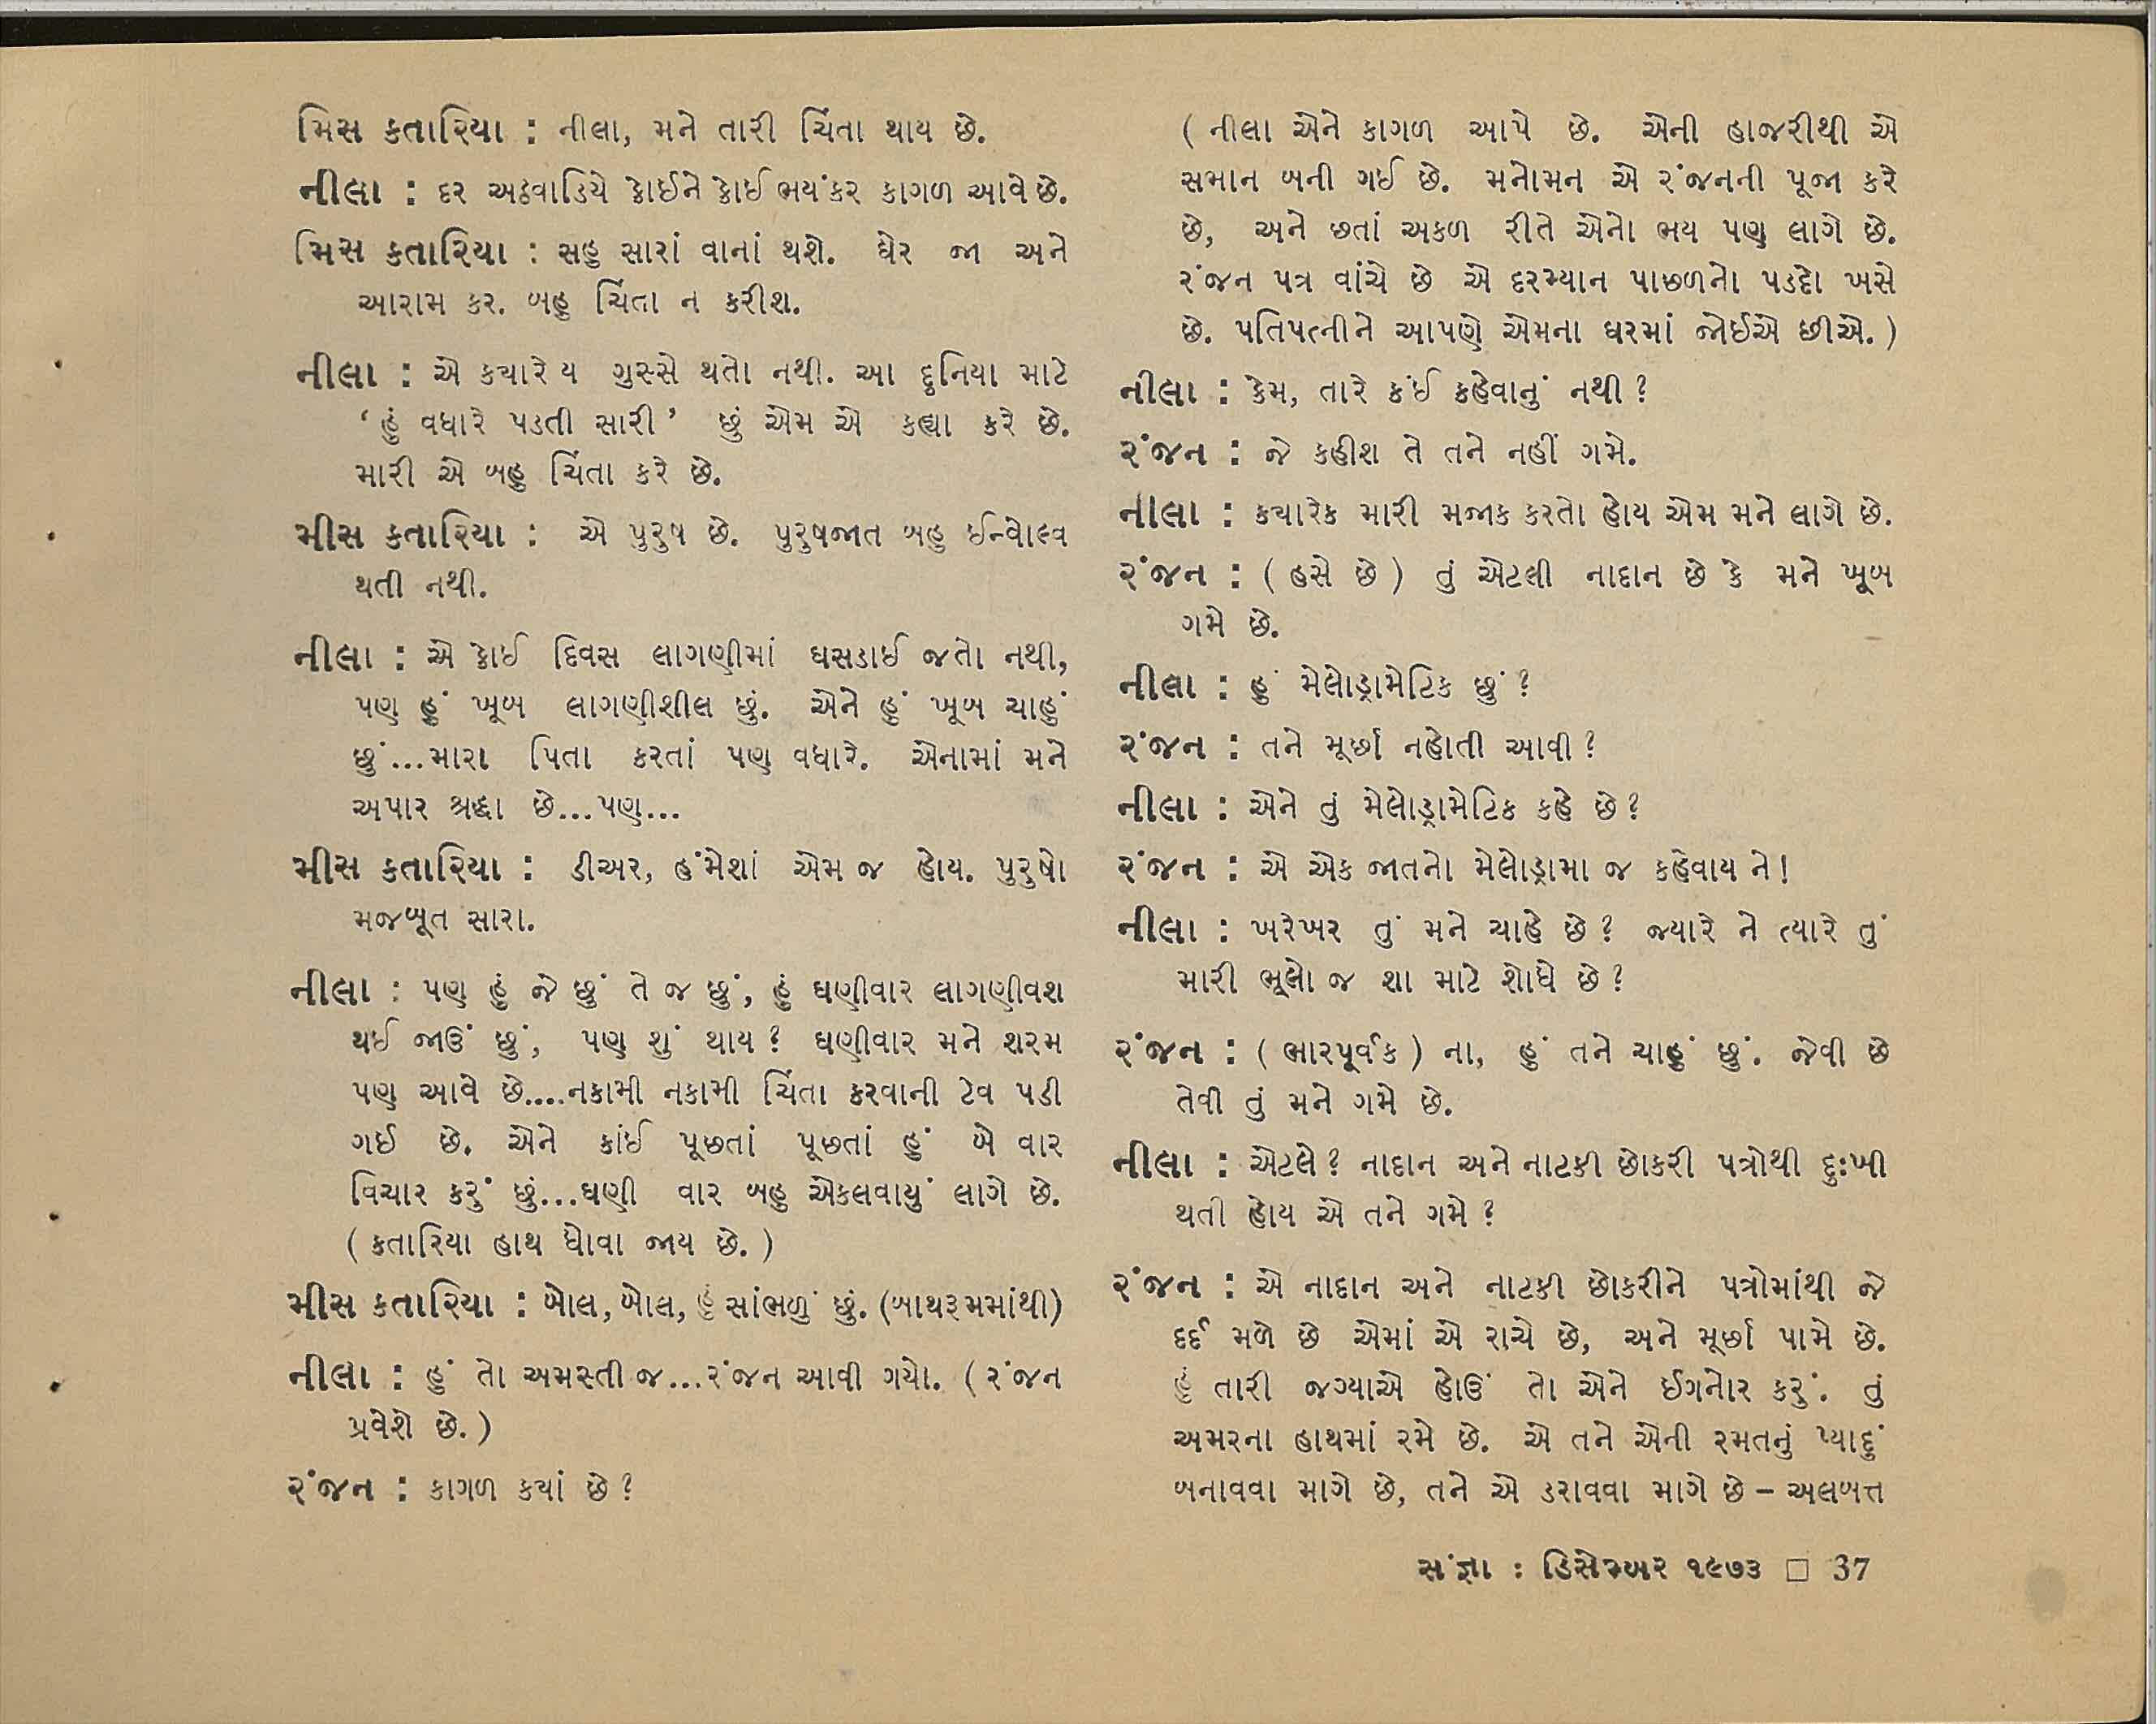 મિસ કતારિયા : નીલા, મને તારી ચિંતા થાય છે.
નીલા : દર અઠવાડિયે કોઈને કોઈ ભયંકર કાગળ આવે છે.
મિસ કતારિયા : સહુ સારાં વાનાં થશે. ઘેર જા અને
આરામ કર. બહુ ચિંતા ન કરીશ.
નીલા : એ કયારે ય ગુસ્સે થતો નથી. આ દુનિયા માટે
‘હું વધારે પડતી સારી’ છું એમ એ કહ્યા કરે છે.
મારી એ બહુ ચિંતા કરે છે.
મીસ કતારિયા : એ પુરુષ છે. પુરુષજાત બહુ ઈન્વોલ્વ
થતી નથી.
નીલા : એ કોઈ દિવસ લાગણીમાં ઘસડાઈ જતો નથી,
પણ હું ખૂબ લાગણીશીલ છું. એને હું ખૂબ ચાહું
છું...મારા પિતા કરતાં પણ વધારે. એનામાં મને
અપાર શ્રદ્ધા છે...પણ...
મીસ કતારિયા : ડીઅર, હંમેશાં એમ જ હોય. પુરુષો
મજબૂત સારા.
નીલા : પણ હું જે છું તે જ છું, હું ઘણીવાર લાગણીવશ
થઈ જાઉં છું, પણ શું થાય? ઘણીવાર મને શરમ
પણ આવે છે....નકામી નકામી ચિંતા કરવાની ટેવ પડી
ગઈ છે. એને કાંઈ પૂછતાં પૂછતાં હું બે વાર
વિચાર કરું છું...ઘણી વાર બહુ એકલવાયું લાગે છે.
(કતારિયા હાથ ધોવા જાય છે.)
મીસ કતારિયા : બોલ, બોલ, હું સાંભળું છું. (બાથરૂમમાંથી)
નીલા : હું તો અમસ્તી જ...રંજન આવી ગયો. (રંજન
પ્રવેશે છે.)
રંજન : કાગળ કયાં છે?
(નીલા એને કાગળ આપે છે. એની હાજરીથી એ
સભાન બની ગઈ છે. મનોમન એ રંજનની પૂજા કરે
છે, અને છતાં અકળ રીતે એનો ભય પણ લાગે છે.
રંજન પત્ર વાંચે છે એ દરમ્યાન પાછળનો પડદો ખસે
છે. પતિપત્નીને આપણે એમના ઘરમાં જોઈએ છીએ.)
નીલા : કેમ, તારે કંઈ કહેવાનું નથી?
રંજન : જે કહીશ તે તને નહીં ગમે.
નીલા : કયારેક મારી મજાક કરતો હોય એમ મને લાગે છે.
રંજન : (હસે છે) તું એટલી નાદાન છે કે મને ખૂબ
ગમે છે.
નીલા : હું મેલોડ્રામેટિક છું?
રંજન : તને મૂર્છા નહોતી આવી?
નીલા : એને તું મેલોડ્રામેટિક કહે છે?
રંજન : એ એક જાતનો મેલોડ્રામા જ કહેવાય ને!
નીલા : ખરેખર તું મને ચાહે છે? જ્યારે ને ત્યારે તું
મારી ભૂલો જ શા માટે શોધે છે?
રંજન : (ભારપૂર્વક) ના, હું તને ચાહું છું. જેવી છે
તેવી તું મને ગમે છે.
નીલા : એટલે? નાદાન અને નાટકી છોકરી પત્રોથી દુઃખી
થતી હોય એ તને ગમે?
રંજન : એ નાદાન અને નાટકી છોકરીને પત્રોમાંથી જે
દર્દ મળે છે એમાં એ રાચે છે, અને મૂર્છા પામે છે.
હું તારી જગ્યાએ હોઉં તો એને ઈગનોર કરું. તું
અમરના હાથમાં રમે છે. એ તને એની રમતનું પ્યાદું
બનાવવા માગે છે, તને એ ડરાવવા માગે છે – અલબત્ત
સંજ્ઞા : ડિસેમ્બર ૧૯૭૩ □ 37